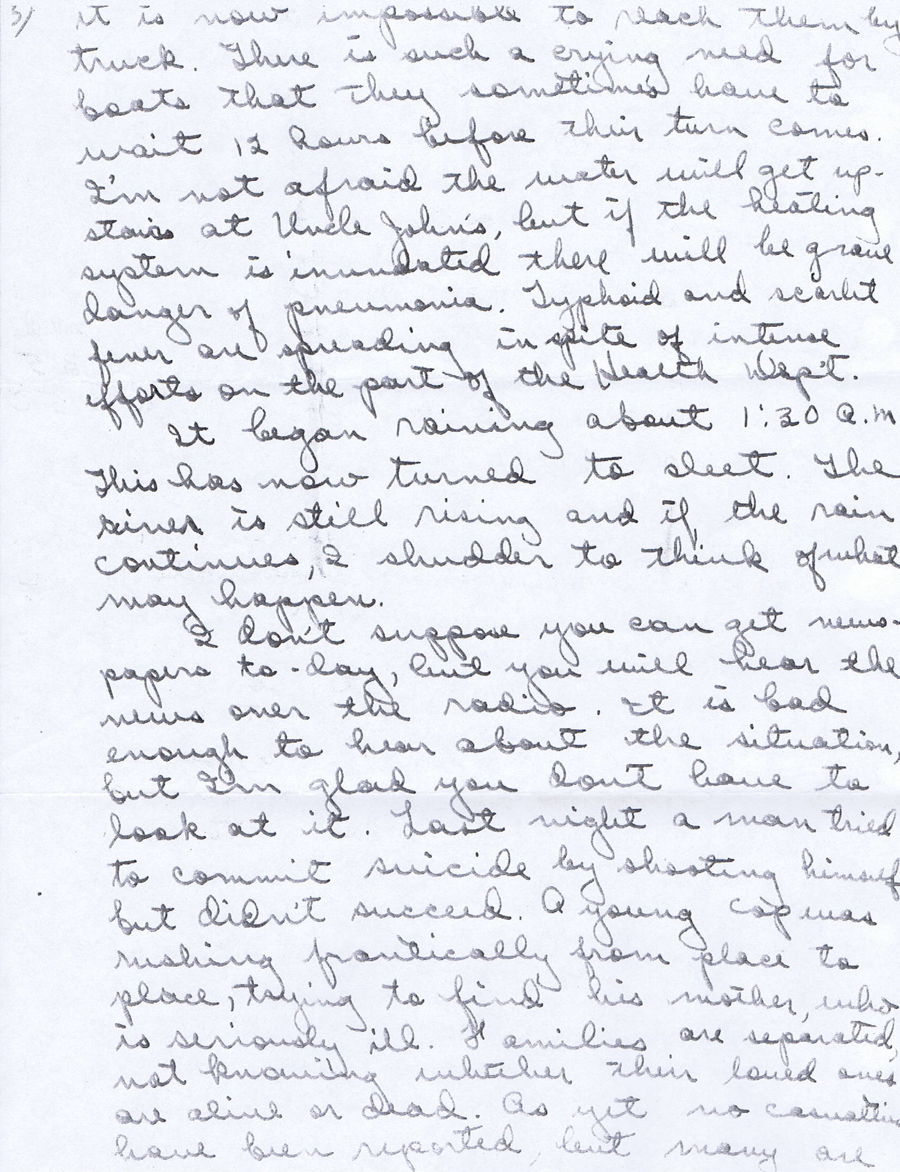 3/ it is now impossible to reach them by
truck. There is such a crying need for
boats that they sometimes have to
wait 12 hours before their turn comes.
I'm not afraid the water will get up-
stairs at Uncle John's, but if the heating
system is inundated there will be grave
danger of pneumonia. Typhoid and scarlet
fever are spreading in spite of intense
efforts on the part of the Health Dep't.
It began raining about 1:30 A.M
This has now turned to sleet. The
river is still rising and if the rain
continues, I shudder to think of what
may happen.
I don't suppose you can get news-
papers to-day, but you will hear the
news over the radio. It is bad
enough to hear about the situation,
but I'm glad you don't have to
look at it. Last night a man tried
to commit suicide by shooting himself
but didn't succeed. A young cop was
rushing frantically from place to
place, trying to find his mother, who
is seriously ill. Families are separated,
not knowing whether their loved ones
are alive or dead. As yet no casualties
have been reported, but many are